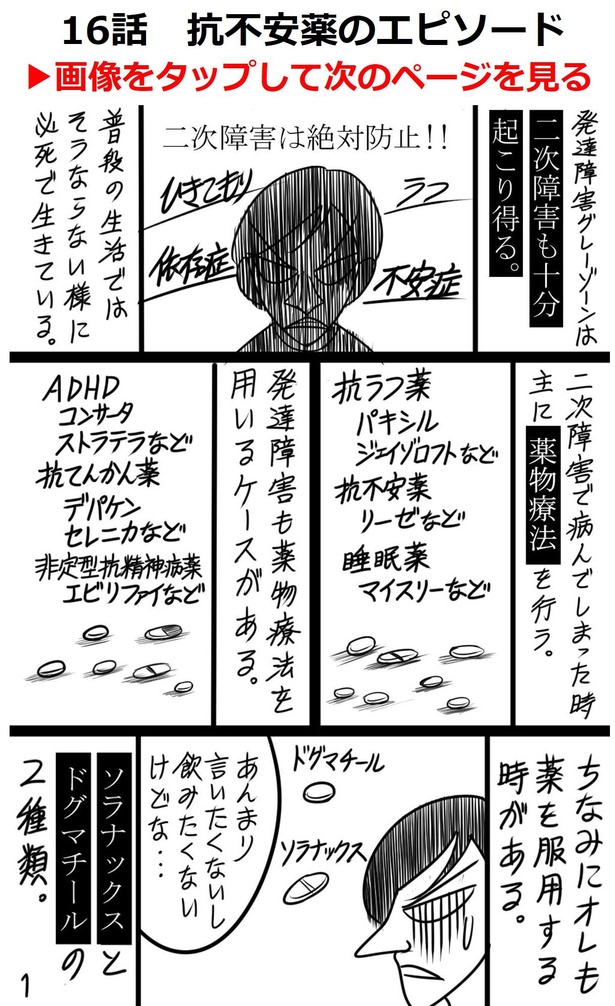 16話 抗不安薬のエピソード
▶画像をタップして次のページを見る
発達障害グレーゾーンは
二次障害も十分
起こり得る。
二次障害は絶対防止!!
ひきこもり
うつ
依存症
不安症
普段の生活では
そうならない様に
必死で生きている。
二次障害で病んでしまった時
主に薬物療法を行う。
抗うつ薬
パキシル
ジェイゾロフトなど
抗不安薬
リーゼなど
睡眠薬
マイスリーなど
発達障害も薬物療法を
用いるケースがある。
ADHD
コンサータ
ストラテラなど
抗てんかん薬
デパケン
セレニカなど
非定型抗精神病薬
エビリファイなど
ちなみにオレも
薬を服用する
時がある。
ドグマチール
ソラナックス
あんまり
言いたくないし
飲みたくない
けどな…
ソラナックスと
ドグマチールの
2種類。
1